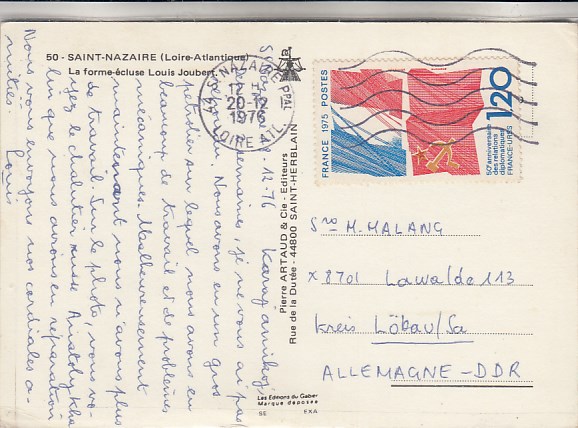 50 - SAINT-NAZAIRE (Loire-Atlantique)
La forme-écluse Louis Joubert.
12. 76
Karaj amikoj,
semaines, je ne vous ai pas
Nous avons eu un gros
pétrolier sur lequel nous avons eu
beaucoup de travail et de problèmes
mécaniques. Malheureusement
maintenant nous n'avons plus
de travail. Sur la photo, vous vo-
yez le chalutier russe Anatoly Kha
lin que nous avions en réparation
Nous vous envoyons nos cordiales a-
mitiés. Louis
ST-NAZAIRE PPAL
20-12
1976
44 LOIRE ATL.
Pierre ARTAUD & Cie - Editeurs
Rue de la Dutée - 44800 SAINT-HERBLAIN
Les Editions du Gabier
Marque déposée
SE EXA
FRANCE 1975 POSTES
1,20
50e anniversaire
des relations
diplomatiques
FRANCE-URSS
Sro M. MALANG
x 8701 Lawalde 113
Kreis Löbau/Sa
ALLEMAGNE-DDR